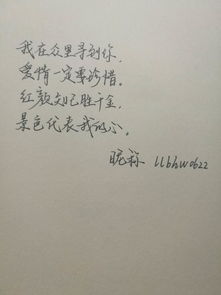 我在众里寻到你，
爱情一定要珍惜。
红颜知己胜千金，
景色代表我的心。
昵称 llbhw0622